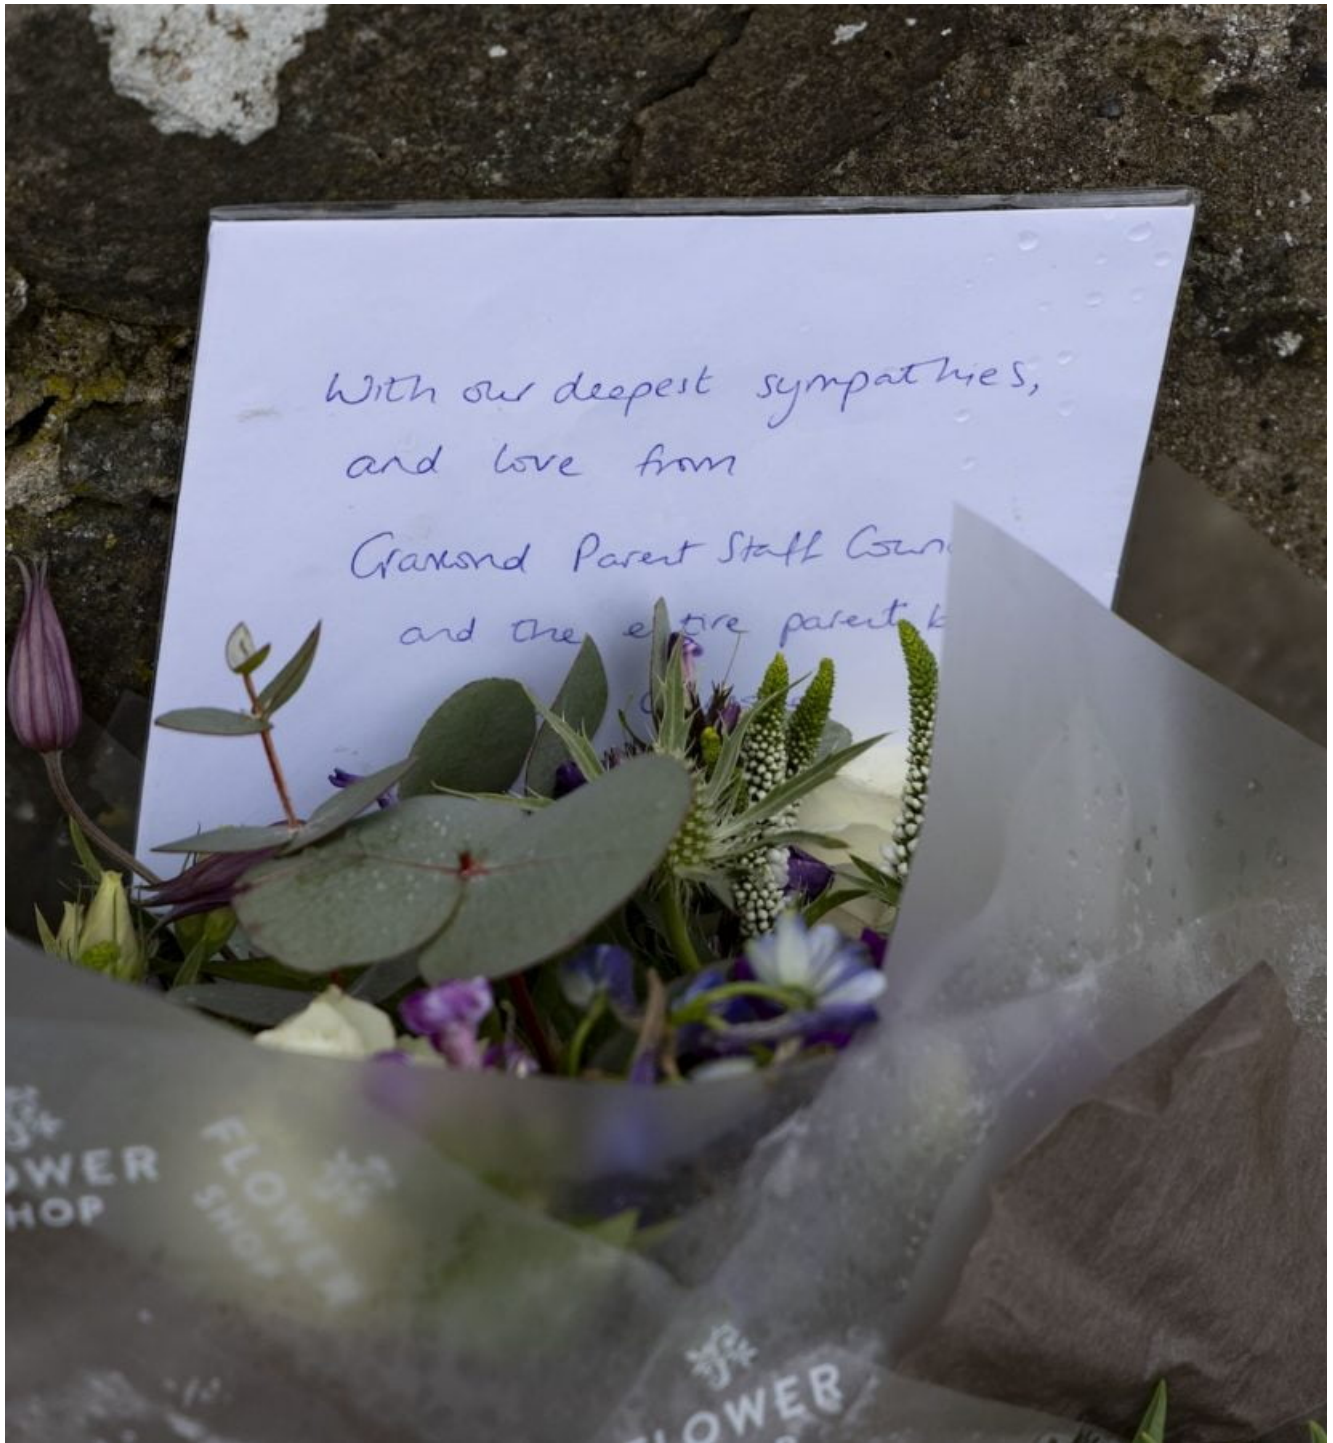 With our deepest sympathies,
and love from
Cramond Parent Staff Coun
and the entire parent b
OWER
HOP
FLOWER
SHOP
FLOWER